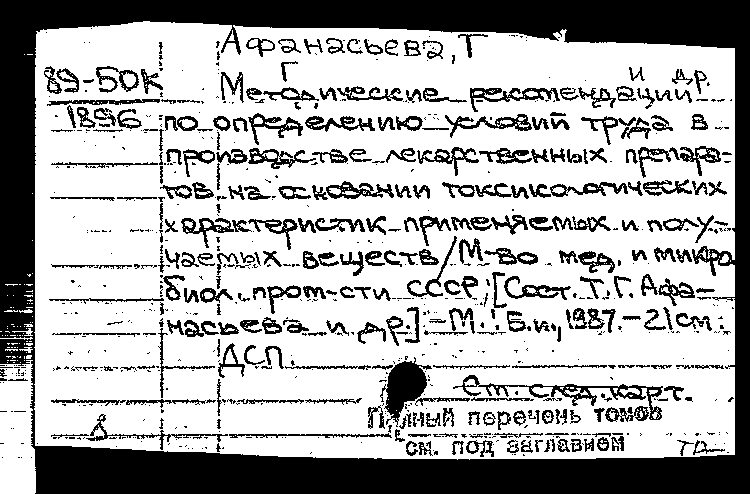 Афанасьева, Т
Г и др.
89-БОК
1896
Методические рекомендации
по определению условий труда в
производстве лекарственных препара-
тов на основании токсикологических
характеристик применяемых и полу-
чаемых веществ/М-во мед. и микро
биол. пром-сти СССР; [Сост. Т.Г. Афа-
насьева и др.] - М.: Б.и., 1987. - 21 см.
ДСП.
Ст. след. карт.
Полный перечень томов
см. под заглавием